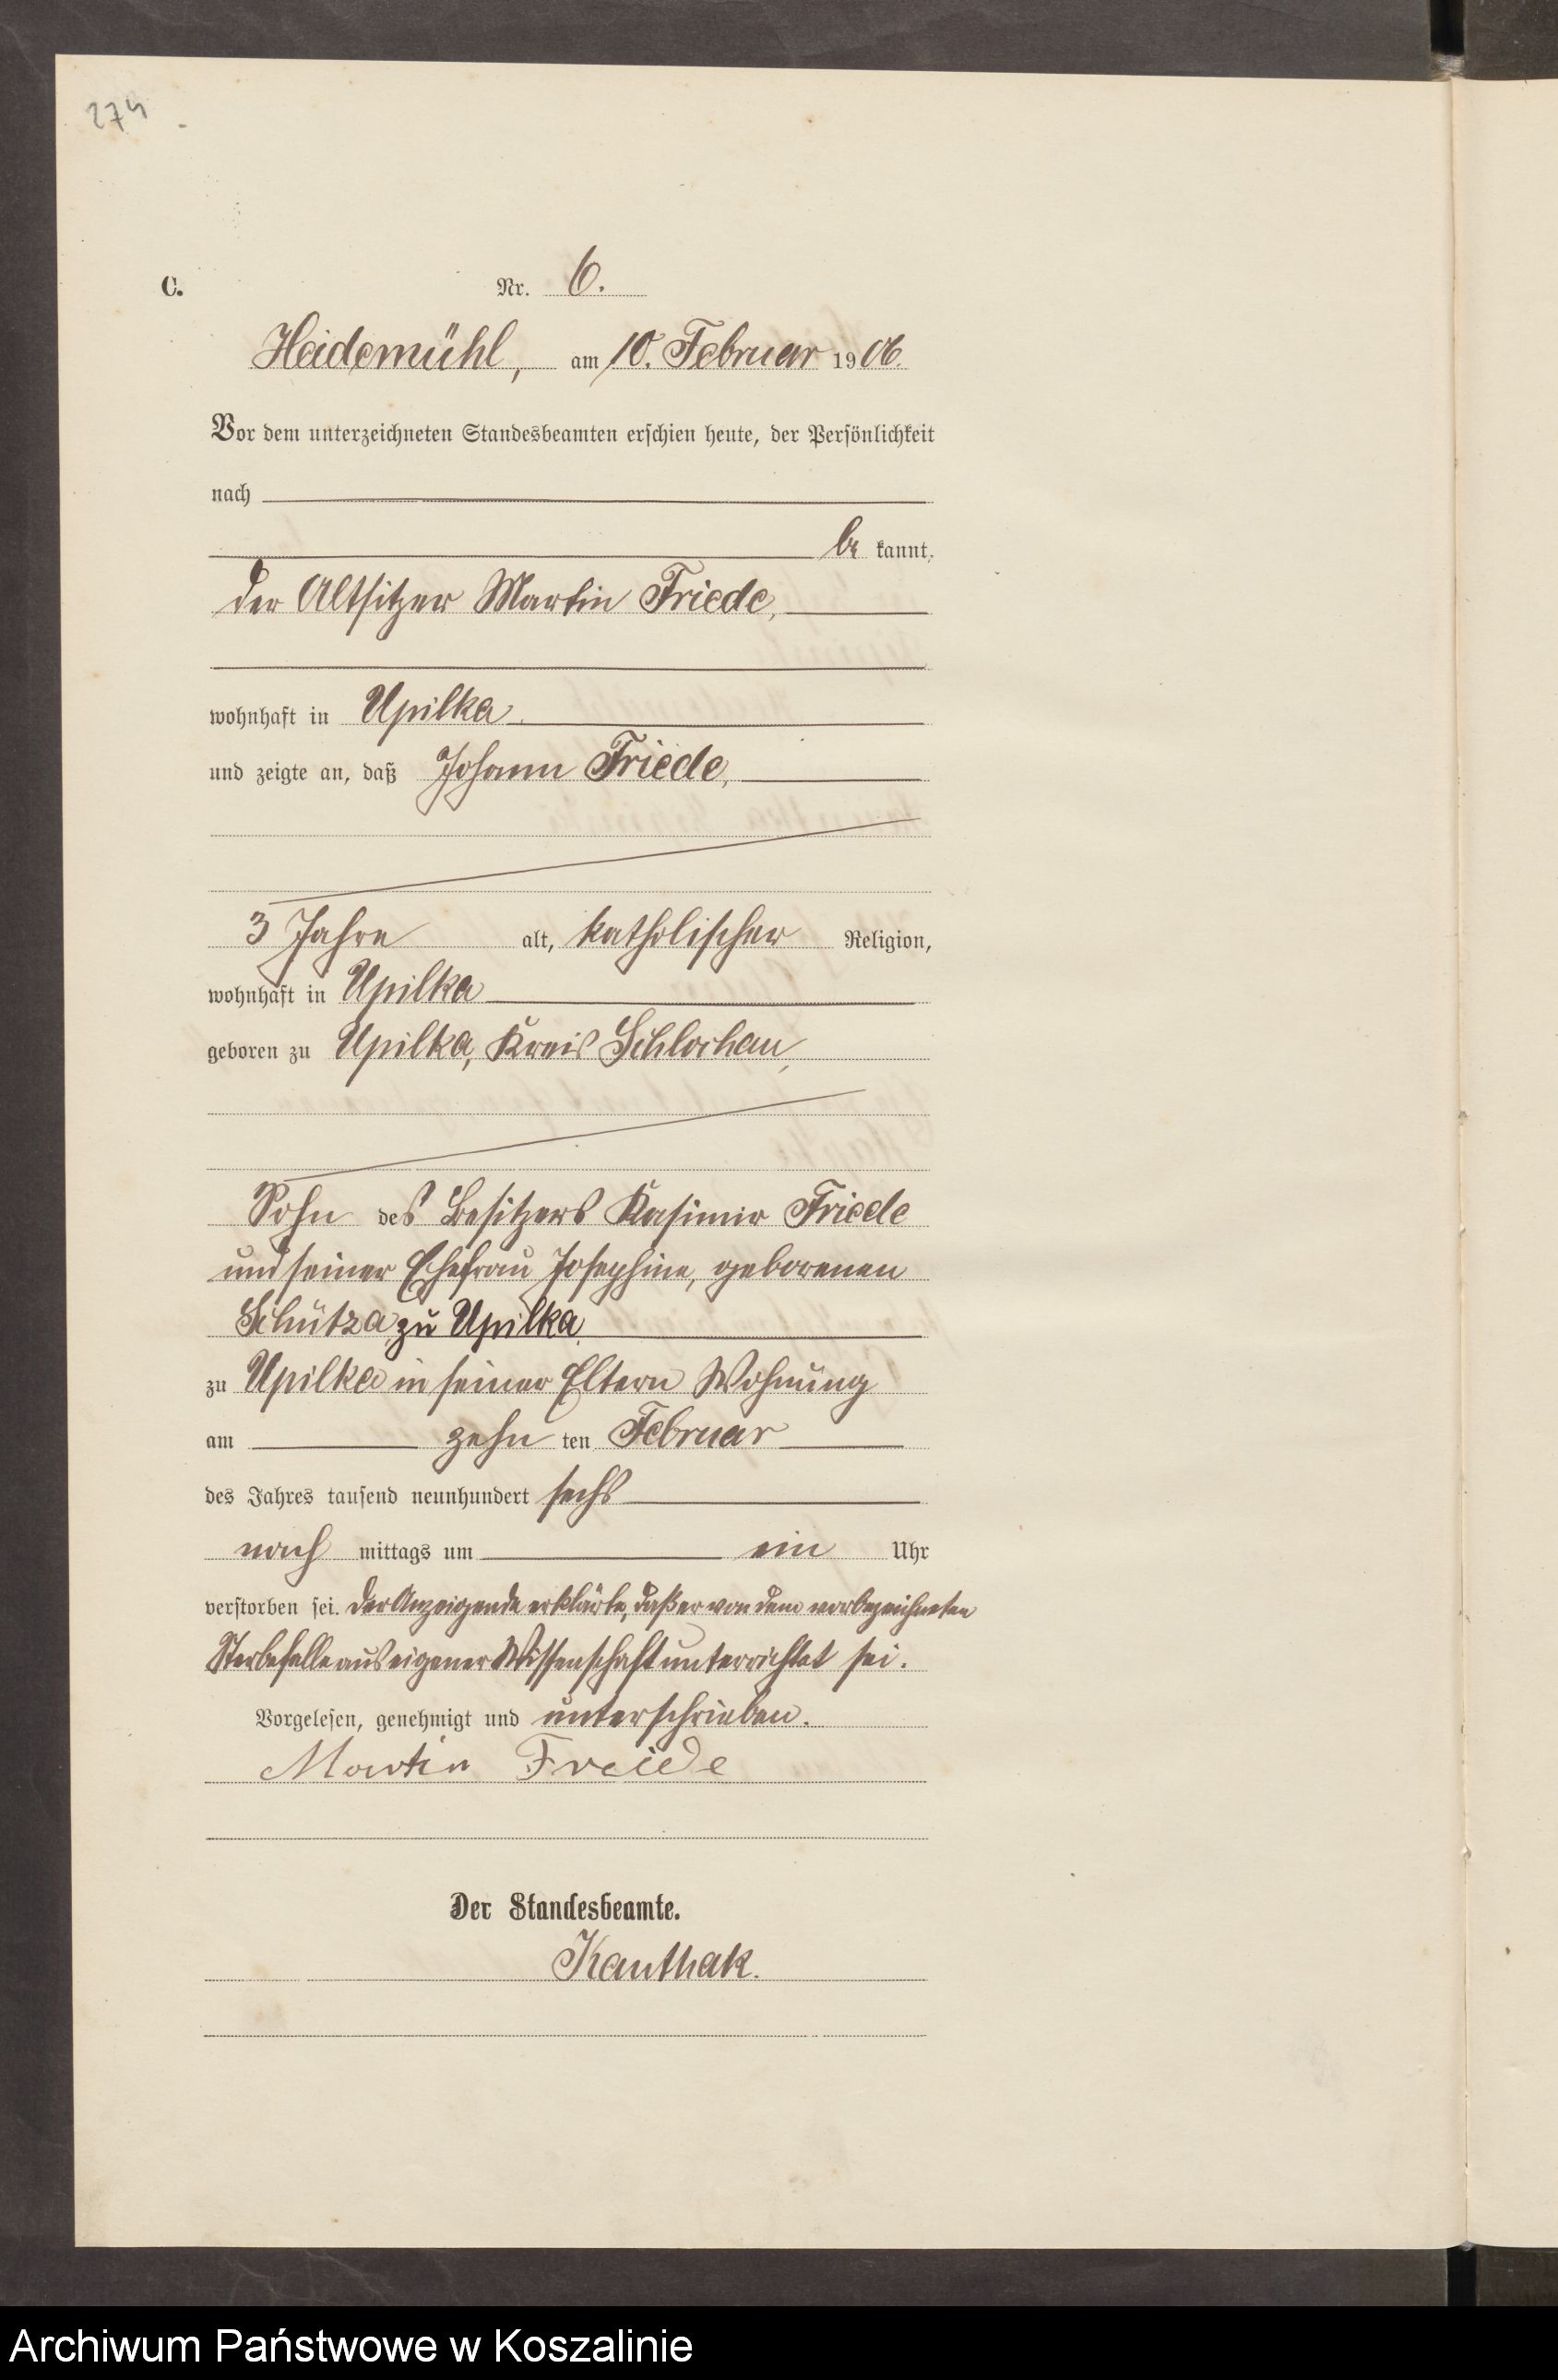 274
C. Nr. 6.
Heidemühl, am 10. Februar 1906.
Vor dem unterzeichneten Standesbeamten erschien heute, der Persönlichkeit
nach
be kannt,
der Altsitzer Martin Friede,
wohnhaft in Upilka
und zeigte an, daß Johann Friede,
3 Jahre alt, katholischer Religion,
wohnhaft in Upilka
geboren zu Upilka, Kreis Schlochau,
Sohn des Besitzers Kasimir Friede
und seiner Ehefrau Josephine, geborenen
Schütza, zu Upilka
zu Upilka in seiner Eltern Wohnung
am zehn ten Februar
des Jahres tausend neunhundert sechs
nach mittags um ein Uhr
verstorben sei. Der Anzeigende erklärte, daß er von dem vorbezeichneten
Sterbefalle aus eigener Wissenschaft unterrichtet sei.
Vorgelesen, genehmigt und unterschrieben.
Martin Freide
Der Standesbeamte.
Kauthak.
Archiwum Państwowe w Koszalinie